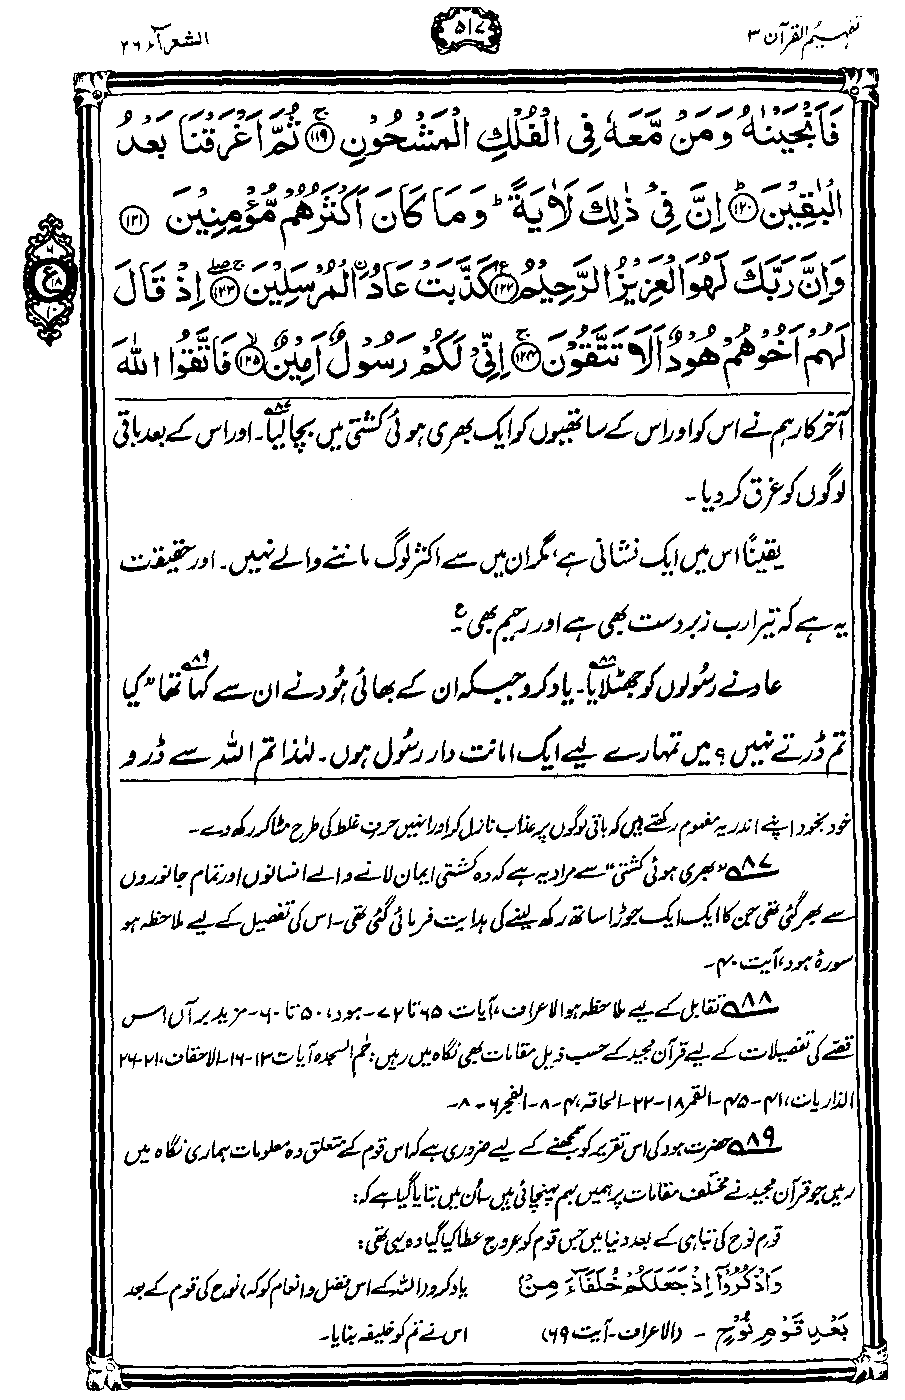 تفہیم القرآن ۳
۵۱۷
الشعرآء ۲۶
فَاَنْجَيْنٰهُ وَمَنْ مَّعَهٗ فِي الْفُلْكِ الْمَشْحُوْنِ ۚ﴿۱۱۹﴾ ثُمَّ اَغْرَقْنَا بَعْدُ
الْبٰقِيْنَ ؕ﴿۱۲۰﴾ اِنَّ فِيْ ذٰلِكَ لَاٰيَةً ؕ وَمَا كَانَ اَكْثَرُهُمْ مُّؤْمِنِيْنَ ﴿۱۲۱﴾
وَاِنَّ رَبَّكَ لَهُوَ الْعَزِيْزُ الرَّحِيْمُ ﴿۱۲۲﴾ كَذَّبَتْ عَادُ ۨالْمُرْسَلِيْنَ ﴿۱۲۳﴾ اِذْ قَالَ
لَهُمْ اَخُوْهُمْ هُوْدٌ اَلَا تَتَّقُوْنَ ۚ﴿۱۲۴﴾ اِنِّيْ لَكُمْ رَسُوْلٌ اَمِيْنٌ ۙ﴿۱۲۵﴾ فَاتَّقُوا اللّٰهَ
آخر کار ہم نے اس کو اور اس کے ساتھیوں کو ایک بھری ہوئی کشتی میں بچا لیا۸۷۔ اور اس کے بعد باقی
لوگوں کو غرق کر دیا۔
یقیناً اس میں ایک نشانی ہے، مگر ان میں سے اکثر لوگ ماننے والے نہیں۔ اور حقیقت
یہ ہے کہ تیرا رب زبردست بھی ہے اور رحیم بھی۔ع
عاد نے رسولوں کو جھٹلایا۸۸۔ یاد کرو جبکہ ان کے بھائی ہُود نے ان سے کہا تھا۸۹ "کیا
تم ڈرتے نہیں؟ میں تمہارے لیے ایک امانت دار رسُول ہوں۔ لہٰذا تم اللہ سے ڈرو
خود بخود اپنے اندر یہ مفہوم رکھتے ہیں کہ باقی لوگوں پر عذاب نازل کر اور انہیں حرفِ غلط کی طرح مٹا کر رکھ دے۔
۸۷ "بھری ہوئی کشتی" سے مراد یہ ہے کہ وہ کشتی ایمان لانے والے انسانوں اور تمام جانوروں
سے بھر گئی تھی جن کا ایک ایک جوڑا ساتھ رکھ لینے کی ہدایت فرمائی گئی تھی۔ اس کی تفصیل کے لیے ملاحظہ ہو
سورۂ ہود، آیت ۴۰۔
۸۸ تقابل کے لیے ملاحظہ ہو الاعراف، آیات ۶۵ تا ۷۲۔ ہود، ۵۰ تا ۶۰۔ مزید برآں اس
قصّے کی تفصیلات کے لیے قرآن مجید کے حسب ذیل مقامات بھی نگاہ میں رہیں: حٰم السجدہ آیات ۱۳-۱۶۔ الاحقاف، ۲۱-۲۶
الذاریات، ۴۱-۴۵۔ القمر ۱۸-۲۲۔ الحاقہ، ۴-۸۔ الفجر ۶-۸۔
۸۹ حضرت ہود کی اس تقریر کو سمجھنے کے لیے ضروری ہے کہ اس قوم کے متعلق وہ معلومات ہماری نگاہ میں
رہیں جو قرآن مجید نے مختلف مقامات پر ہمیں بہم پہنچائی ہیں۔ اُن میں بتایا گیا ہے کہ:
قوم نوح کی تباہی کے بعد دنیا میں جس قوم کو عروج عطا کیا گیا وہ یہی تھی:
وَاذْكُرُوْٓا اِذْ جَعَلَكُمْ خُلَفَآءَ مِنْۢ یاد کرو (اللہ کے اس فضل و انعام کو کہ) نوح کی قوم کے بعد
بَعْدِ قَوْمِ نُوْحٍ - (الاعراف-آیت ۶۹) اس نے تم کو خلیفہ بنایا۔